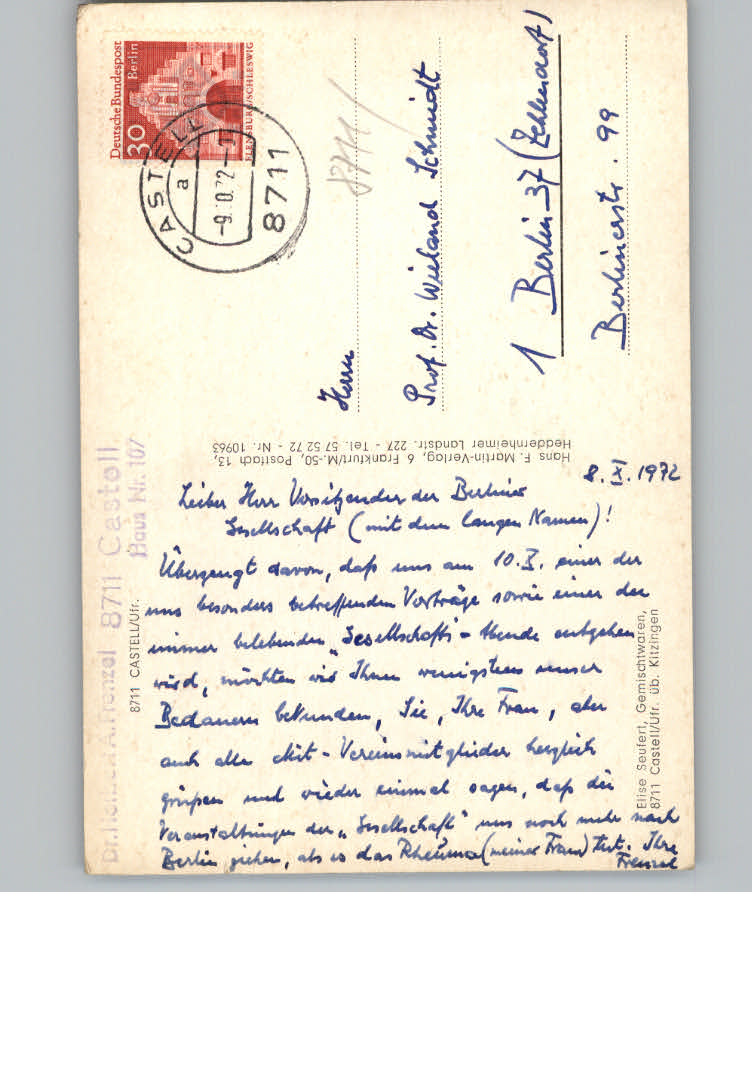 Deutsche Bundespost
Berlin
30
FLENSBURG/SCHLESWIG
CASTELL
a
-9.10.72-
8711
8711
Herrn
Prof. Dr. Wieland Schmidt
1 Berlin 37 (Zehlendorf)
Berlinerstr. 99
Hans F. Martin-Verlag, 6 Frankfurt/M.-50, Postfach 13,
Heddernheimer Landstr. 227 - Tel. 57 52 72 - Nr. 10963
Dr. Herbert A. Frenzel 8711 Castell
Haus Nr. 107
8711 CASTELL/Ufr.
8. X. 1972
Lieber Herr Vorsitzender der Berliner
Gesellschaft (mit dem langen Namen)!
Überzeugt davon, daß uns am 10. X. einer der
uns besonders betreffenden Vorträge sowie einer der
immer belebenden „Gesellschafts"-Abende entgehen
wird, möchten wir Ihnen wenigstens unser
Bedauern bekunden, Sie, Ihre Frau, aber
auch alle Mit-Vereinsmitglieder herzlich
grüßen und wieder einmal sagen, daß die
Veranstaltungen der „Gesellschaft" uns noch mehr nach
Berlin ziehen, als es das Rheuma (meiner Frau) tut. Ihre
Frenzel
Elise Seufert, Gemischtwaren,
8711 Castell/Ufr. üb. Kitzingen